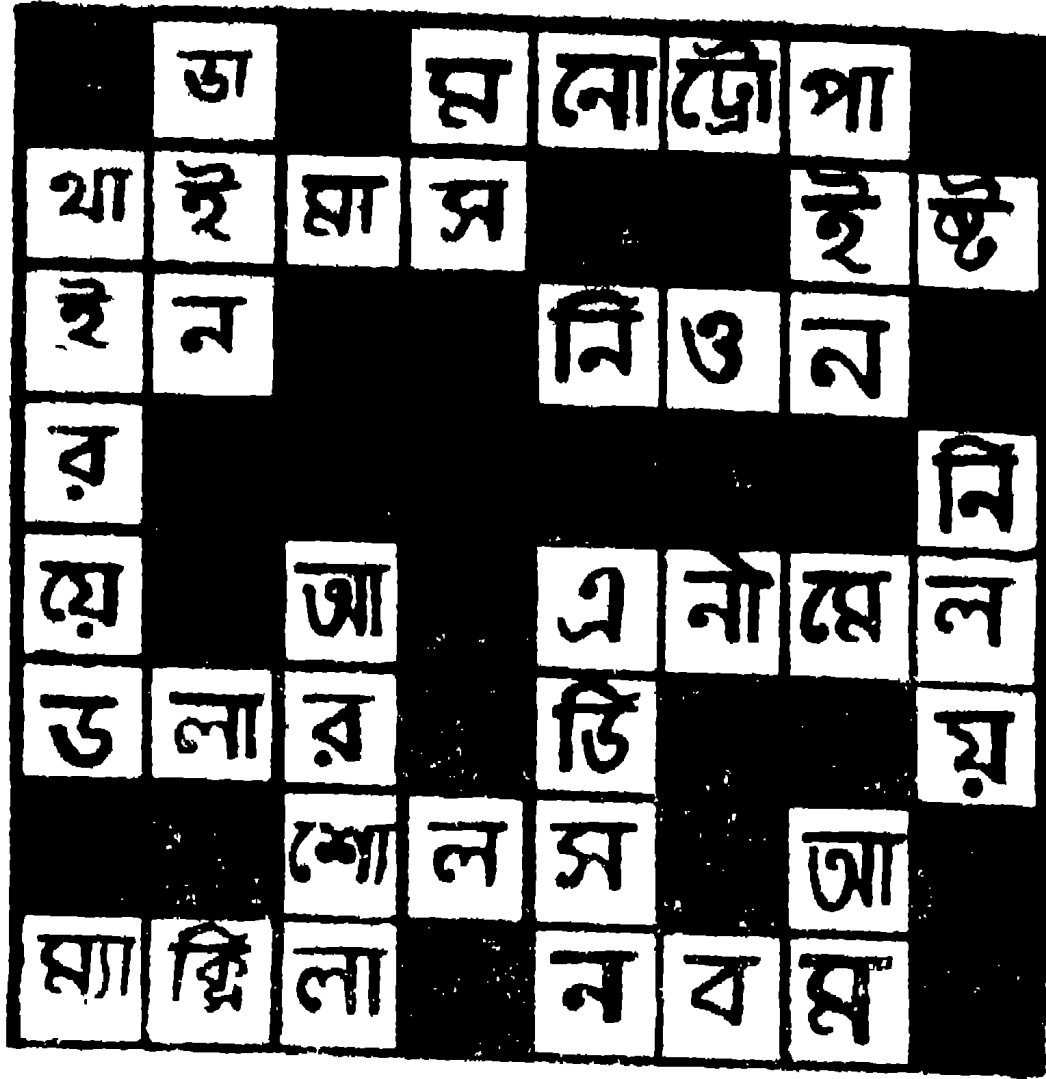 ডা ম নো ট্রো পা
থা ই মা স ই ষ্ট
ই ন নি ও ন
র নি
য়ে আ এ নী মে ল
ড লা র ডি য়
শো ল স আ
ম্যা ক্সি লা ন ব ম